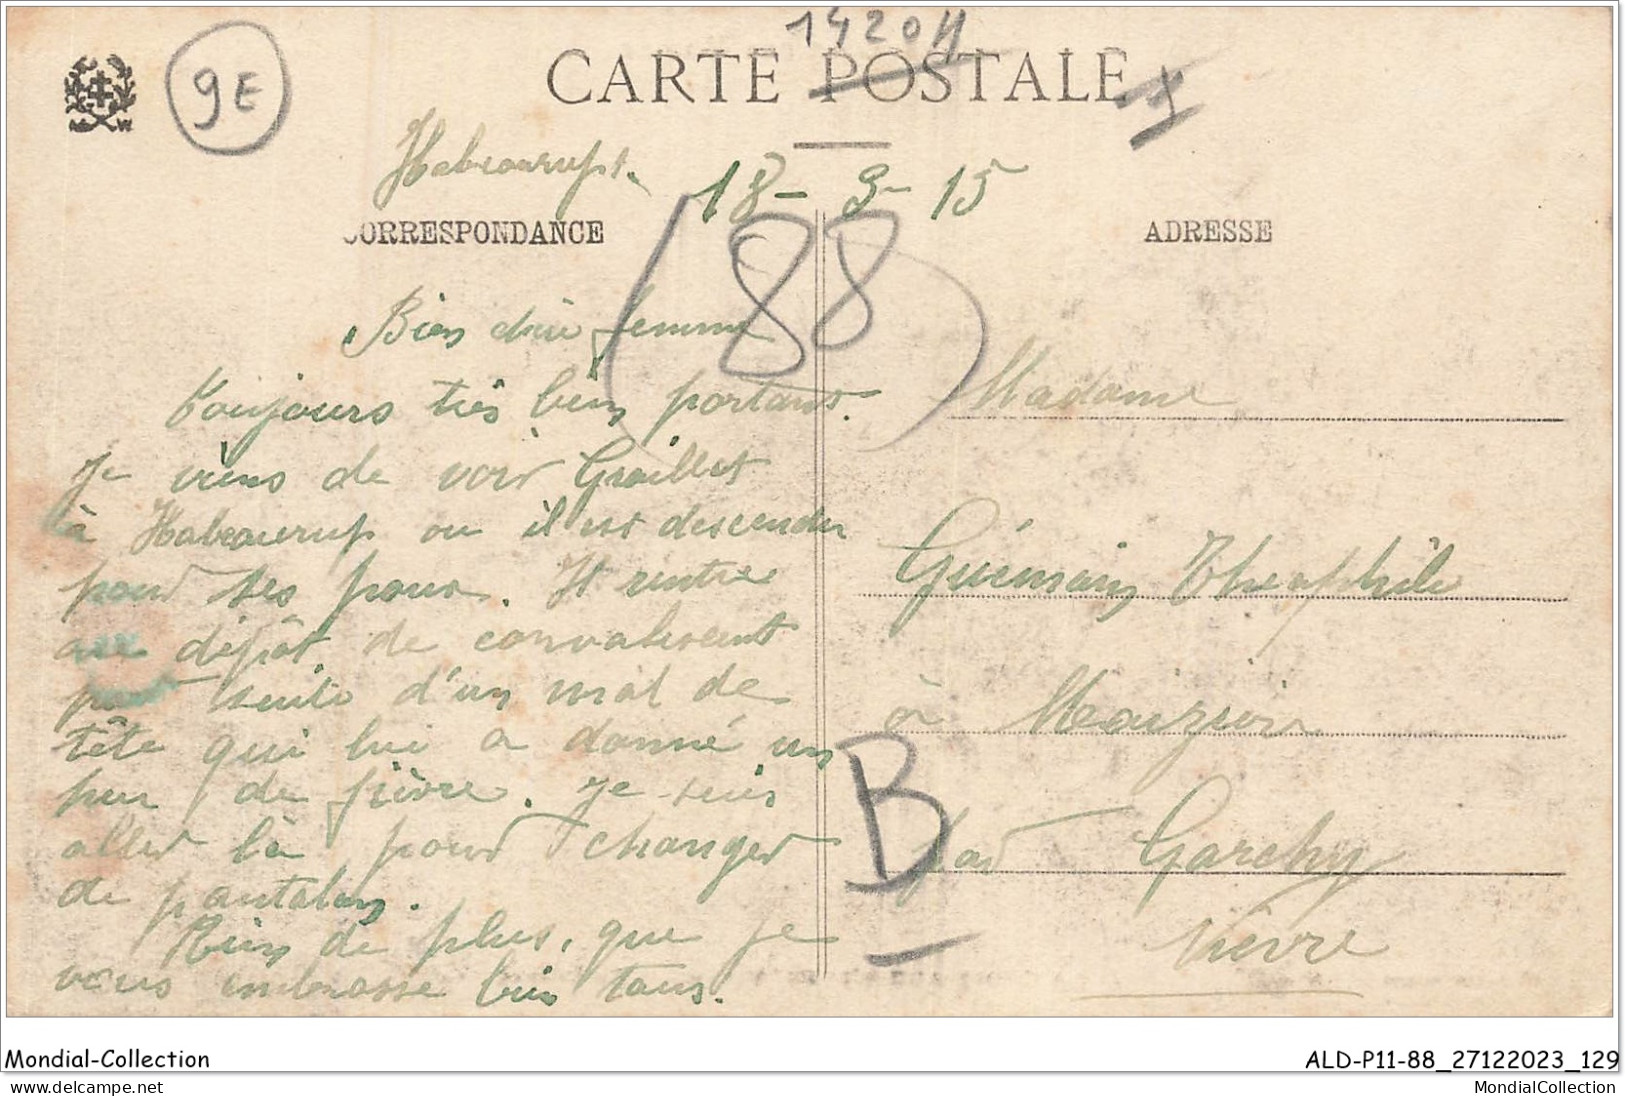 9E
1420H
CARTE POSTALE
Habeaurupt. 18-9-15
(88)
CORRESPONDANCE
ADRESSE
Bien chère femme
Toujours très bien portant.
Je viens de voir Graillot
à Habeaurup ou il est descendu
pour ses poux. Il rentre
au dépôt de convalescent
par suite d'un mal de
tête qui lui a donné un
peu de fièvre. Je suis
aller là pour changer
de pantalon.
Rien de plus, que je
vous embrasse bien tous.
Madame
Théophile
à
B
par Garchy
Nièvre
Mondial-Collection
ALD-P11-88_27122023_129
www.delcampe.net
MondialCollection